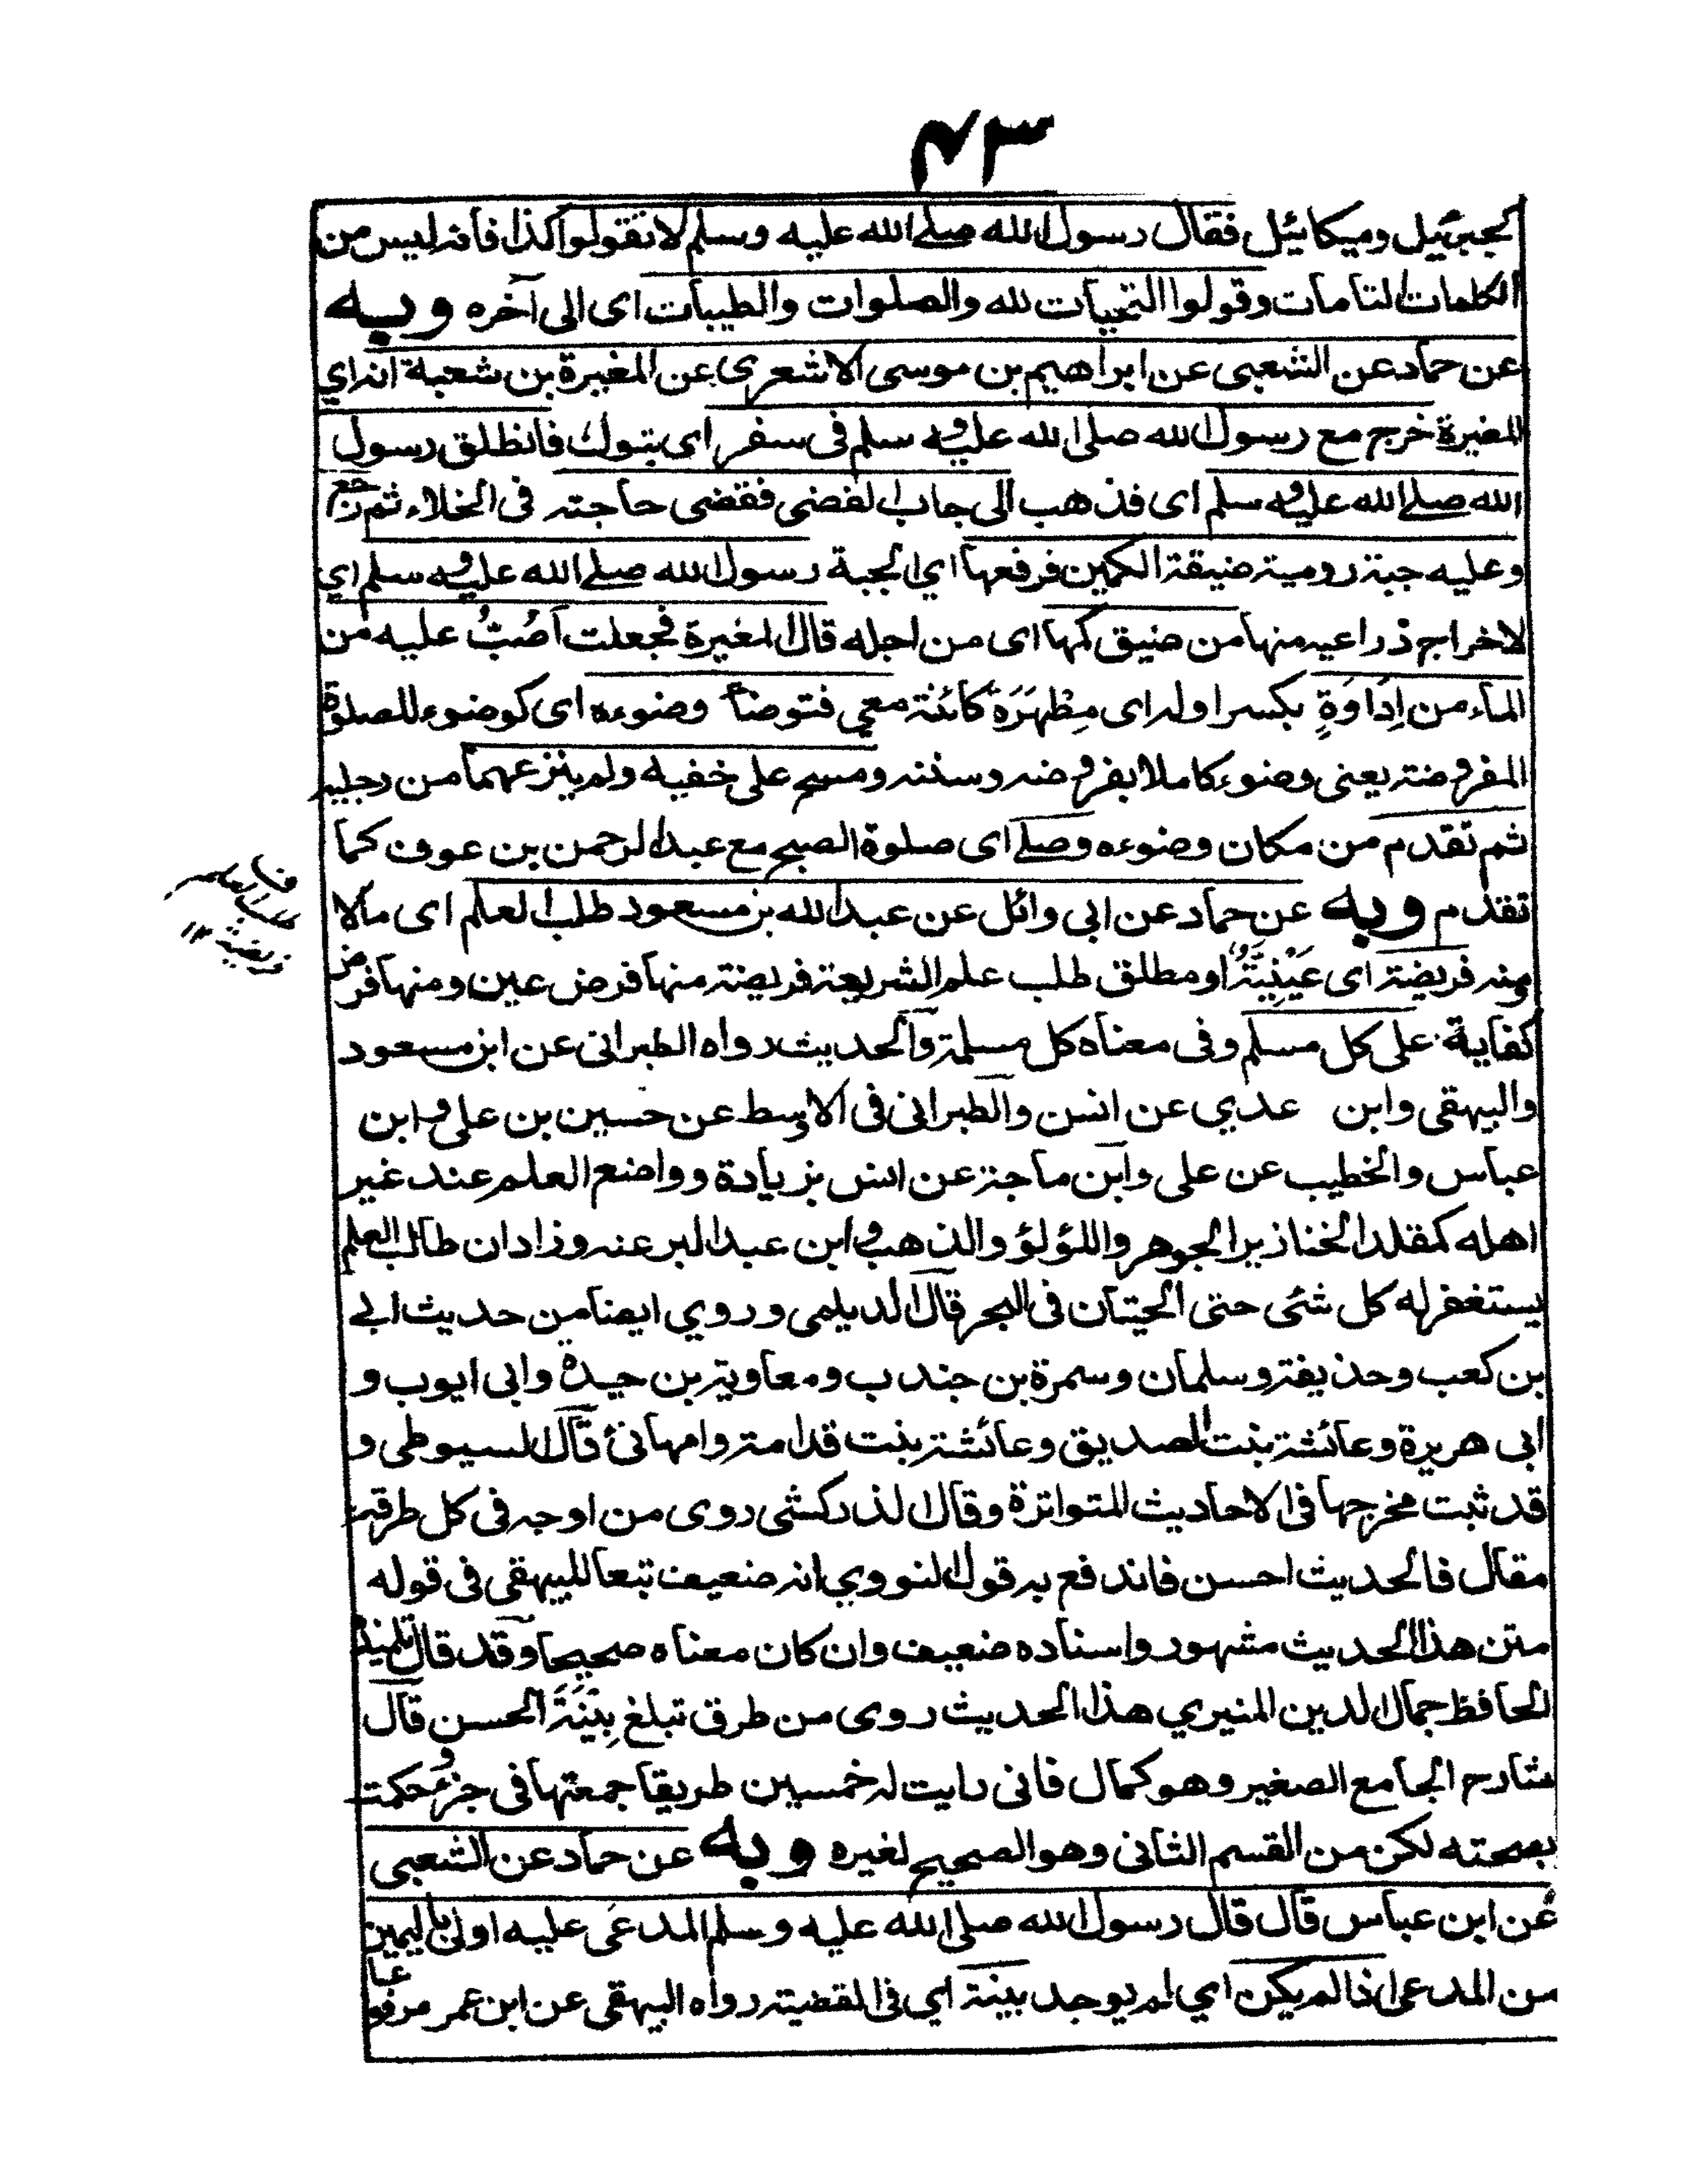 ۴۳
كجبرئيل وميكائيل فقال رسول الله صلے الله عليه وسلم لا تقولوا كذا فانه ليس من
الكلمات التامات وقولوا التحيات لله والصلوات والطيبات اى الى آخره وبه
عن حماد عن الشعبى عن ابراهيم بن موسى الاشعرى عن المغيرة بن شعبة انه اي
المغيرة خرج مع رسول الله صلى الله عليه وسلم فى سفر اى تبوك فانطلق رسول
الله صلے الله عليه وسلم اى فذهب الى جاب الفضى فقضى حاجته فى الخلاء ثم رجع
وعليه جبة رومية ضيقة الكمين فرفعها اي الجبة رسول الله صلے الله عليه وسلم اي
لاخراج ذراعيه منها من ضيق كمها اى من اجله قال المغيرة فجعلت اَصُبُّ عليه من
الماء من اِدَاوَةٍ بكسر اوله اى مِطْهَرَة كائنة معي فتوضأ وضوءه اى كوضوء للصلوة
المفروضة يعنى وضوء كاملا بفروضه وسننه ومسح على خفيه ولم ينزعهما من رجليه
ثم تقدم من مكان وضوءه وصلے اى صلوة الصبح مع عبد الرحمن بن عوف كما
تقدم وبه عن حماد عن ابي وائل عن عبد الله بن مسعود طلب العلم اى مالا
منه فريضة اى عَيْنِيَّةٌ او مطلق طلب علم الشريعة فريضة منها فرض عين ومنها فرض
كفاية على كل مسلم وفى معناه كل مسلمة والحديث رواه الطبرانى عن ابن مسعود
والبيهقى وابن عدي عن انس والطبرانى فى الاوسط عن حسين بن على وابن
عباس والخطيب عن على وابن ماجة عن انس بزيادة وواضع العلم عند غير
اهله كمقلد الخنازير الجوهر واللؤلؤ والذهب وابن عبد البر عنه وزاد ان طالب العلم
يستغفر له كل شئى حتى الحيتان فى البحر قال الديلمى وروي ايضا من حديث ابے
بن كعب وحذيفة وسلمان وسمرة بن جندب ومعاوية بن حيدة وابى ايوب و
ابى هريرة وعائشة بنت الصديق وعائشة بنت قدامة وام هانئ قال السيوطى و
قد ثبت مخرجها فى الاحاديث المتواترة وقال الذركشى روى من اوجه فى كل طرقه
مقال فالحديث احسن فاندفع به قول النووي انه ضعيف تبعا للبيهقى فى قوله
متن هذا الحديث مشهور واسناده ضعيف وان كان معناه صحيحا وقد قال تلميذه
الحافظ جمال الدين المنيري هذا الحديث روى من طرق تبلغ بِيَّنَةَ الحسن قال
شارح الجامع الصغير وهو كمال فانى رايت له خمسين طريقا جمعتها فى جزء وحكمت
بصحته لكن من القسم الثانى وهو الصحيح لغيره وبه عن حماد عن الشعبى
عن ابن عباس قال قال رسول الله صلى الله عليه وسلم المدعى عليه اولى باليمين
من المدعى اذا لم يكن اي لم يوجد بينة اي فى القضية رواه البيهقى عن ابن عمر مرفوعا
طلب العلم
فريضة ۱۲